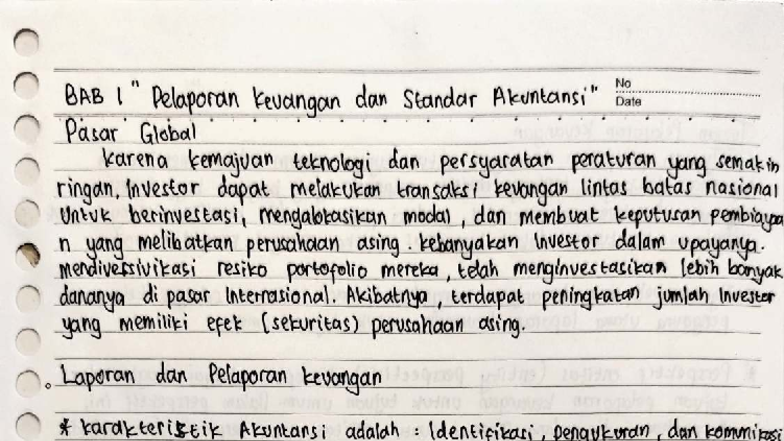 BAB 1 " Pelaporan Keuangan dan Standar Akuntansi"
No
Date
Pasar Global
Karena kemajuan teknologi dan persyaratan peraturan yang semakin
ringan, Investor dapat melakukan transaksi keuangan lintas batas nasional
Untuk berinvestasi, mengalokasikan modal, dan membuat keputusan pembiayaa
n yang melibatkan perusahaan asing. kebanyakan Investor dalam upayanya.
mendiversivikasi resiko portofolio mereka, telah menginvestasikan lebih banyak
dananya di pasar Internasional. Akibatnya, terdapat peningkatan jumlah Investor
yang memiliki efek (sekuritas) perusahaan asing.
Laporan dan Pelaporan keuangan
* karakteristik Akuntansi adalah : Identifikasi, pengukuran, dan kommikas